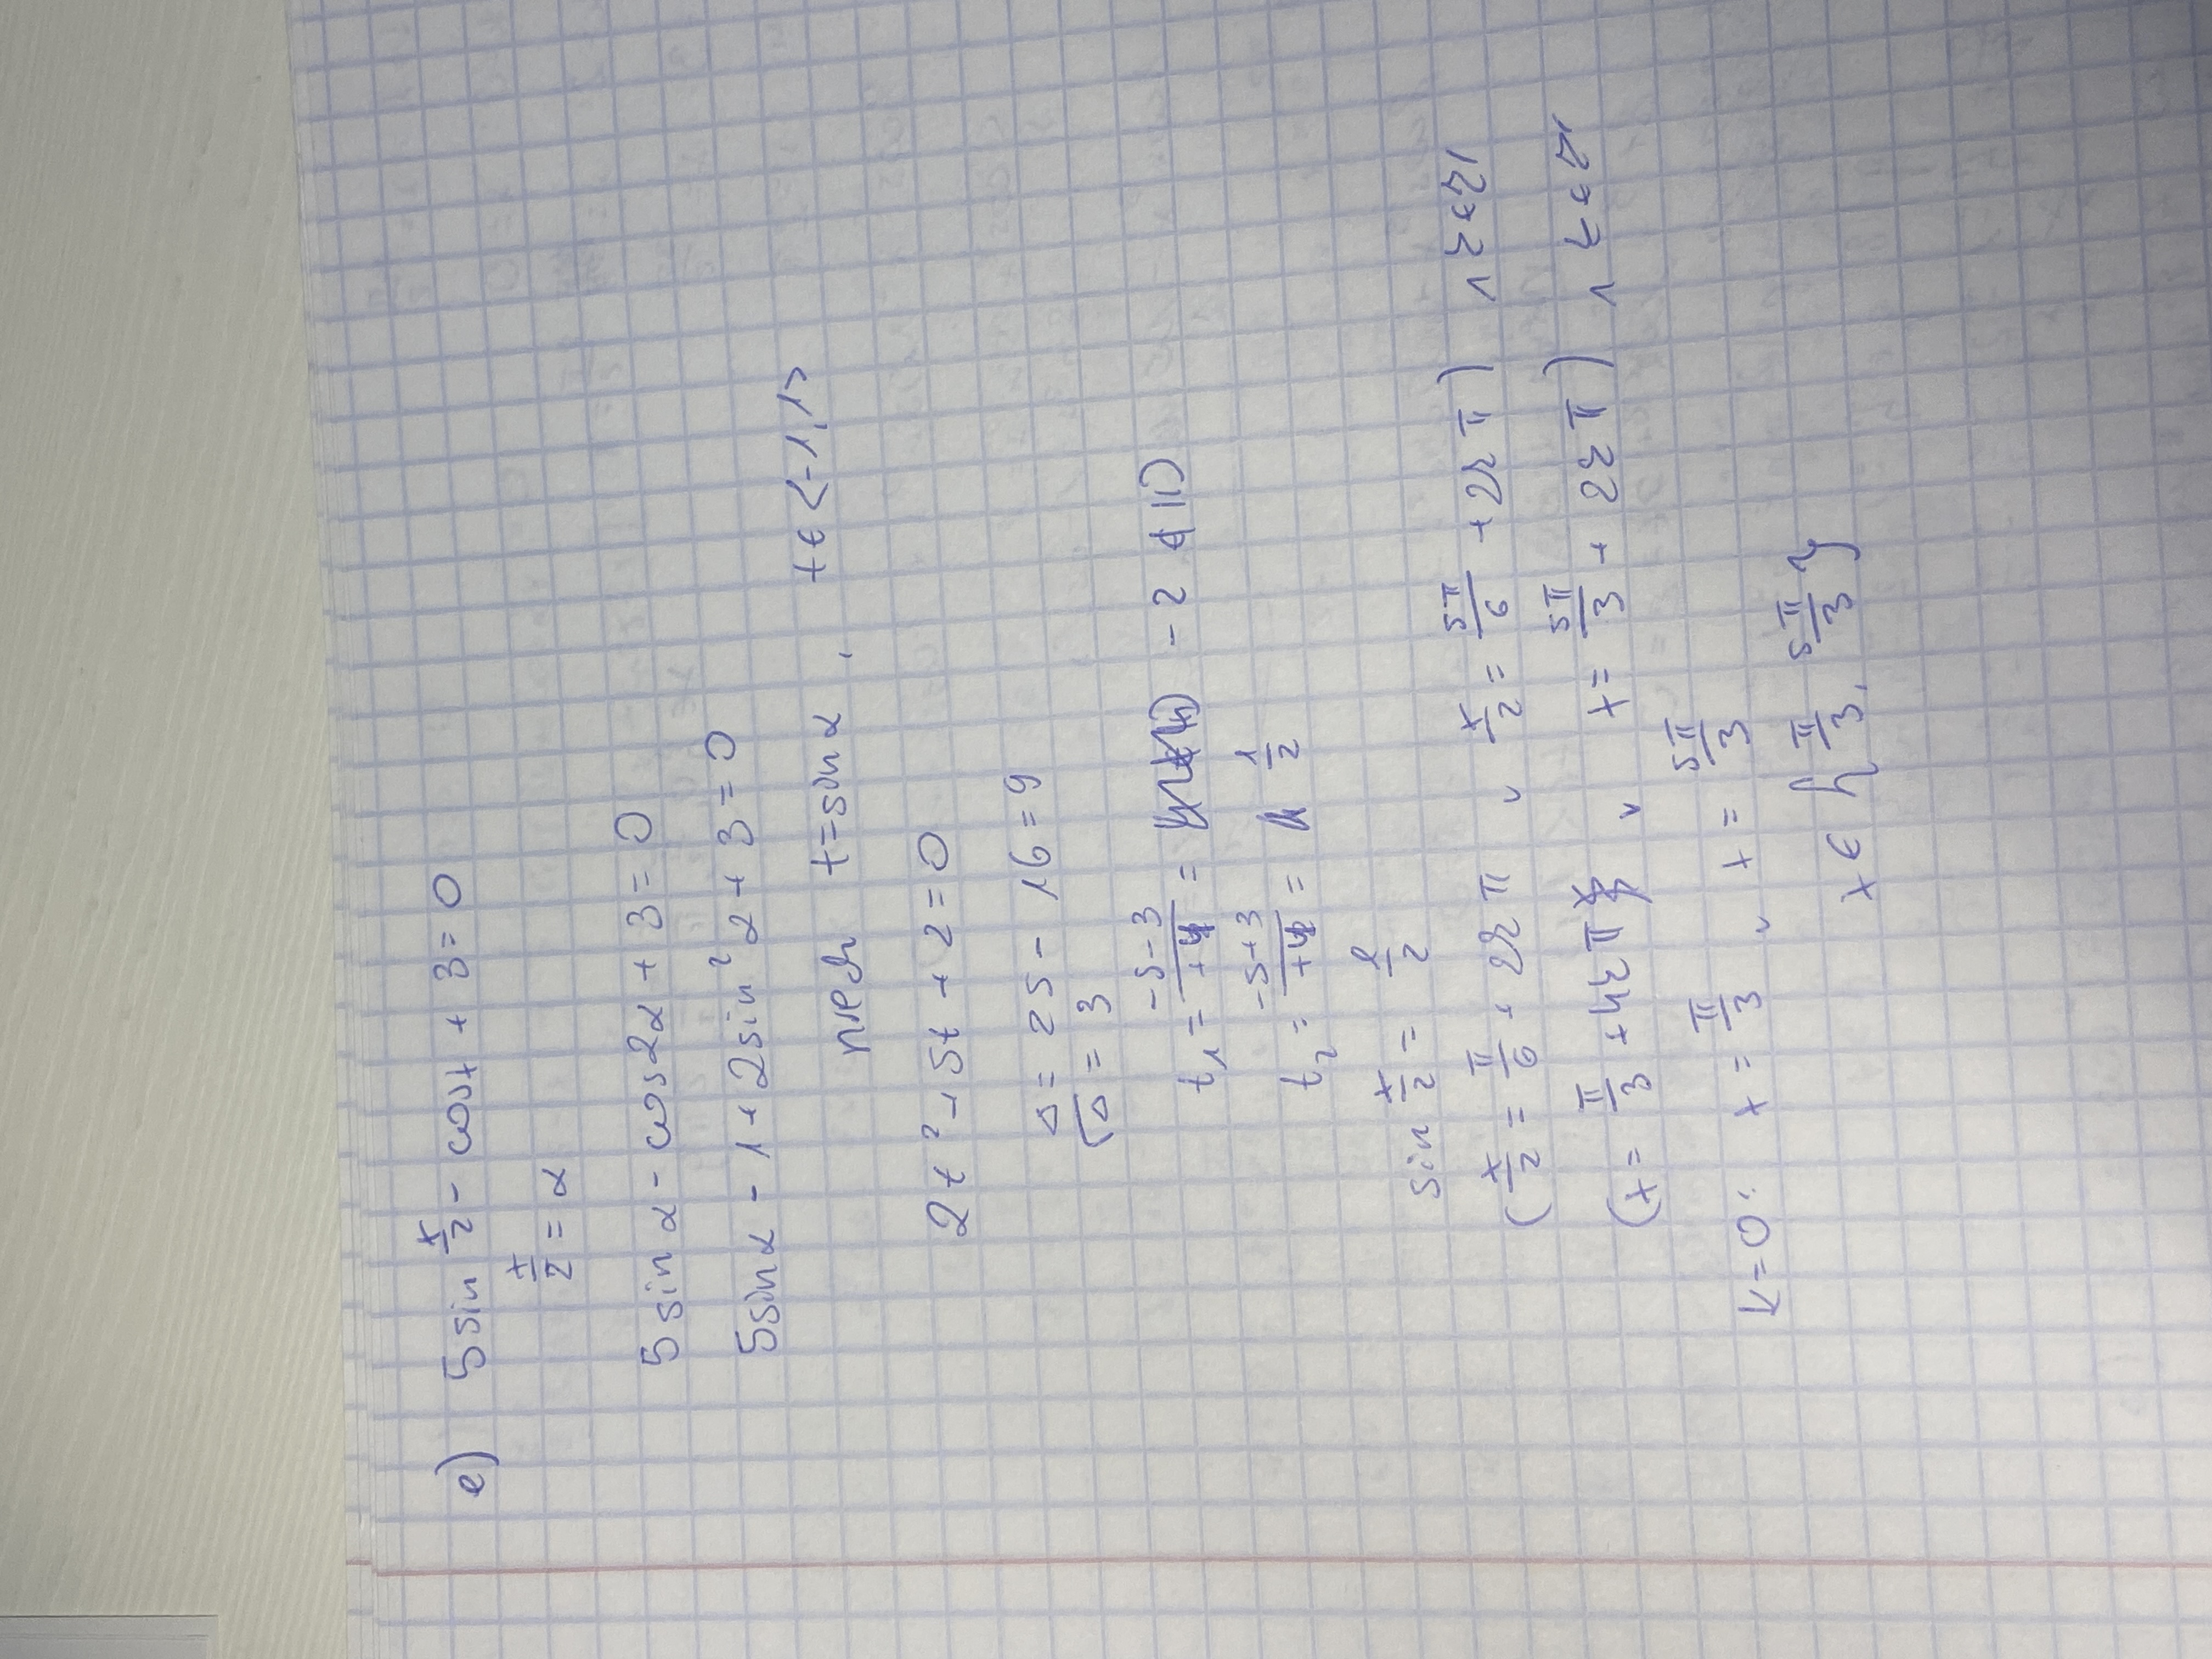 e) 5 sin x/2 - cosx + 3 = 0
x/2 = α
5 sin α - cos2α + 3 = 0
5sinα - 1 + 2sin²α + 3 = 0
niech t = sinα, t ∈ <-1,1>
2t² + 5t + 2 = 0
Δ = 25 - 16 = 9
√Δ = 3
t₁ = (-5-3)/(+4) = -2 ∉ D
t₂ = (-5+3)/(+4) = 1/2
sin x/2 = 1/2
(x/2 = π/6 + 2kπ ∨ x/2 = 5π/6 + 2kπ) ∧ k∈ℤ
(x = π/3 + 4kπ ∨ x = 5π/3 + 2kπ) ∧ k∈ℤ
k=0: x = π/3 ∨ x = 5π/3
x ∈ {π/3, 5π/3}